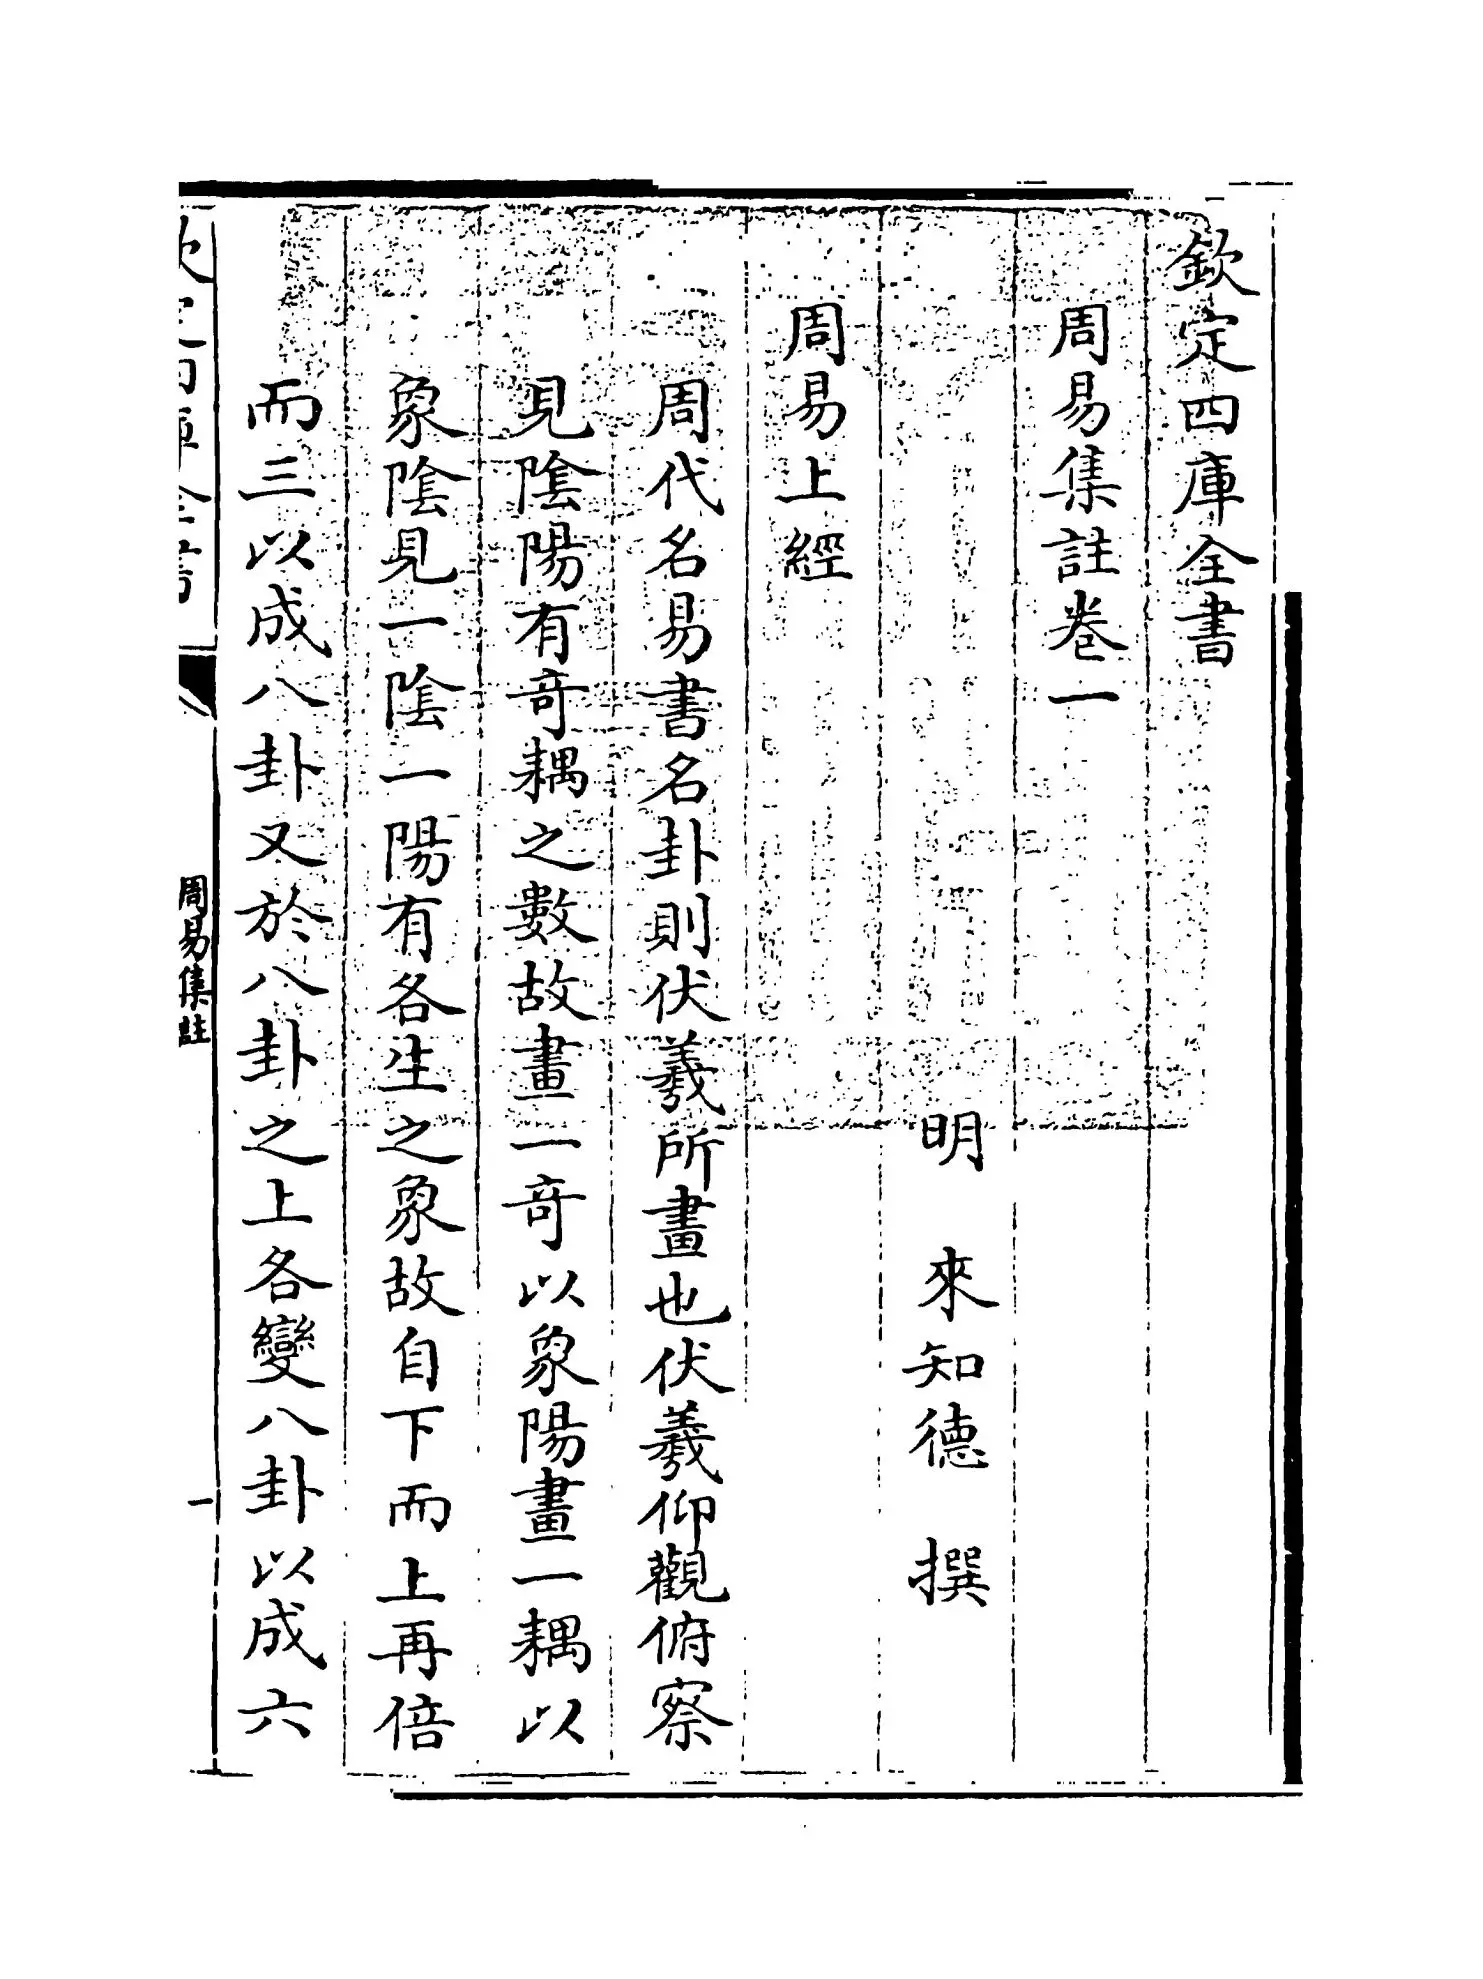 欽定四庫全書
周易集註卷一
明 來知德 撰
周易上經
周代名易書名卦則伏羲所畫也伏羲仰觀俯察
見陰陽有奇耦之數故畫一奇以象陽畫一耦以
象陰見一陰一陽有各生之象故自下而上再倍
而三以成八卦又於八卦之上各變八卦以成六
欽定四庫全書
周易集註
一